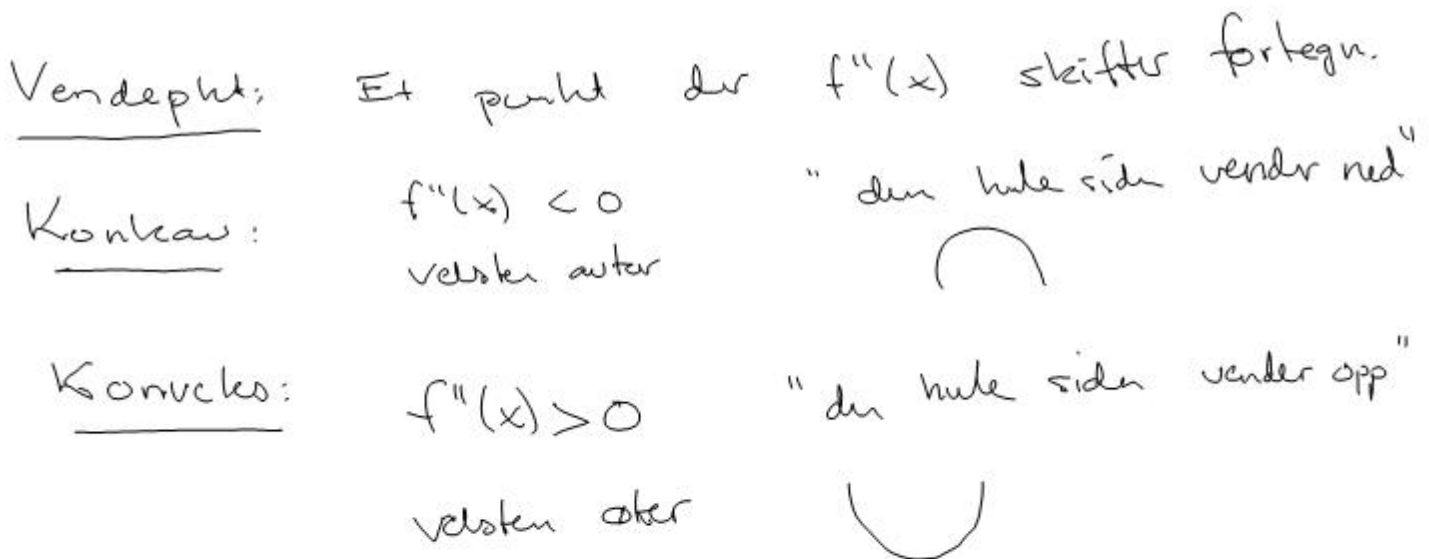 Vendepkt: Et punkt der f''(x) skifter fortegn.
Konkav: f''(x) < 0 "den hule siden vender ned"
veksten avtar
Konveks: f''(x) > 0 "den hule siden vender opp"
veksten øker